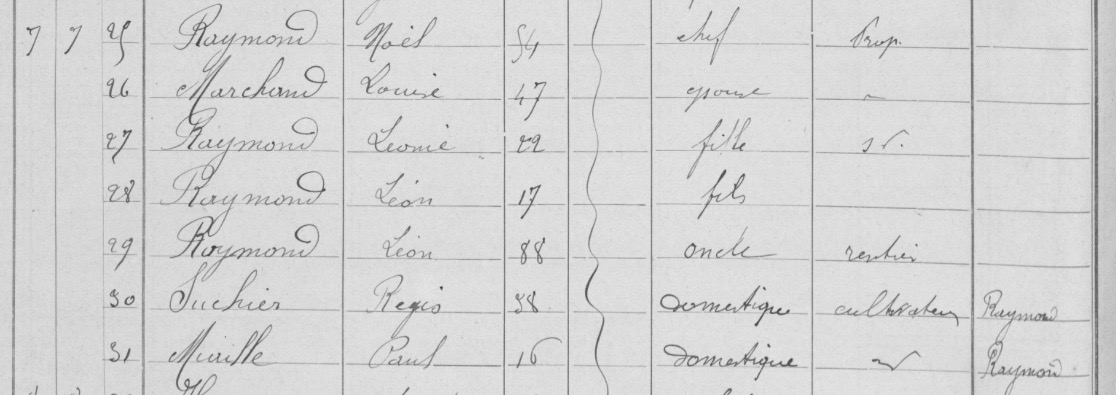 7 7 25 Raymond Noël 54 chef Prop.
26 Marchand Louise 47 épouse
27 Raymond Léonie 22 fille sd.
28 Raymond Léon 17 fils
29 Raymond Léon 88 oncle rentier
30 Suchier Regis 38 domestique cultivateur Raymond
31 Paul 16 domestique Raymond